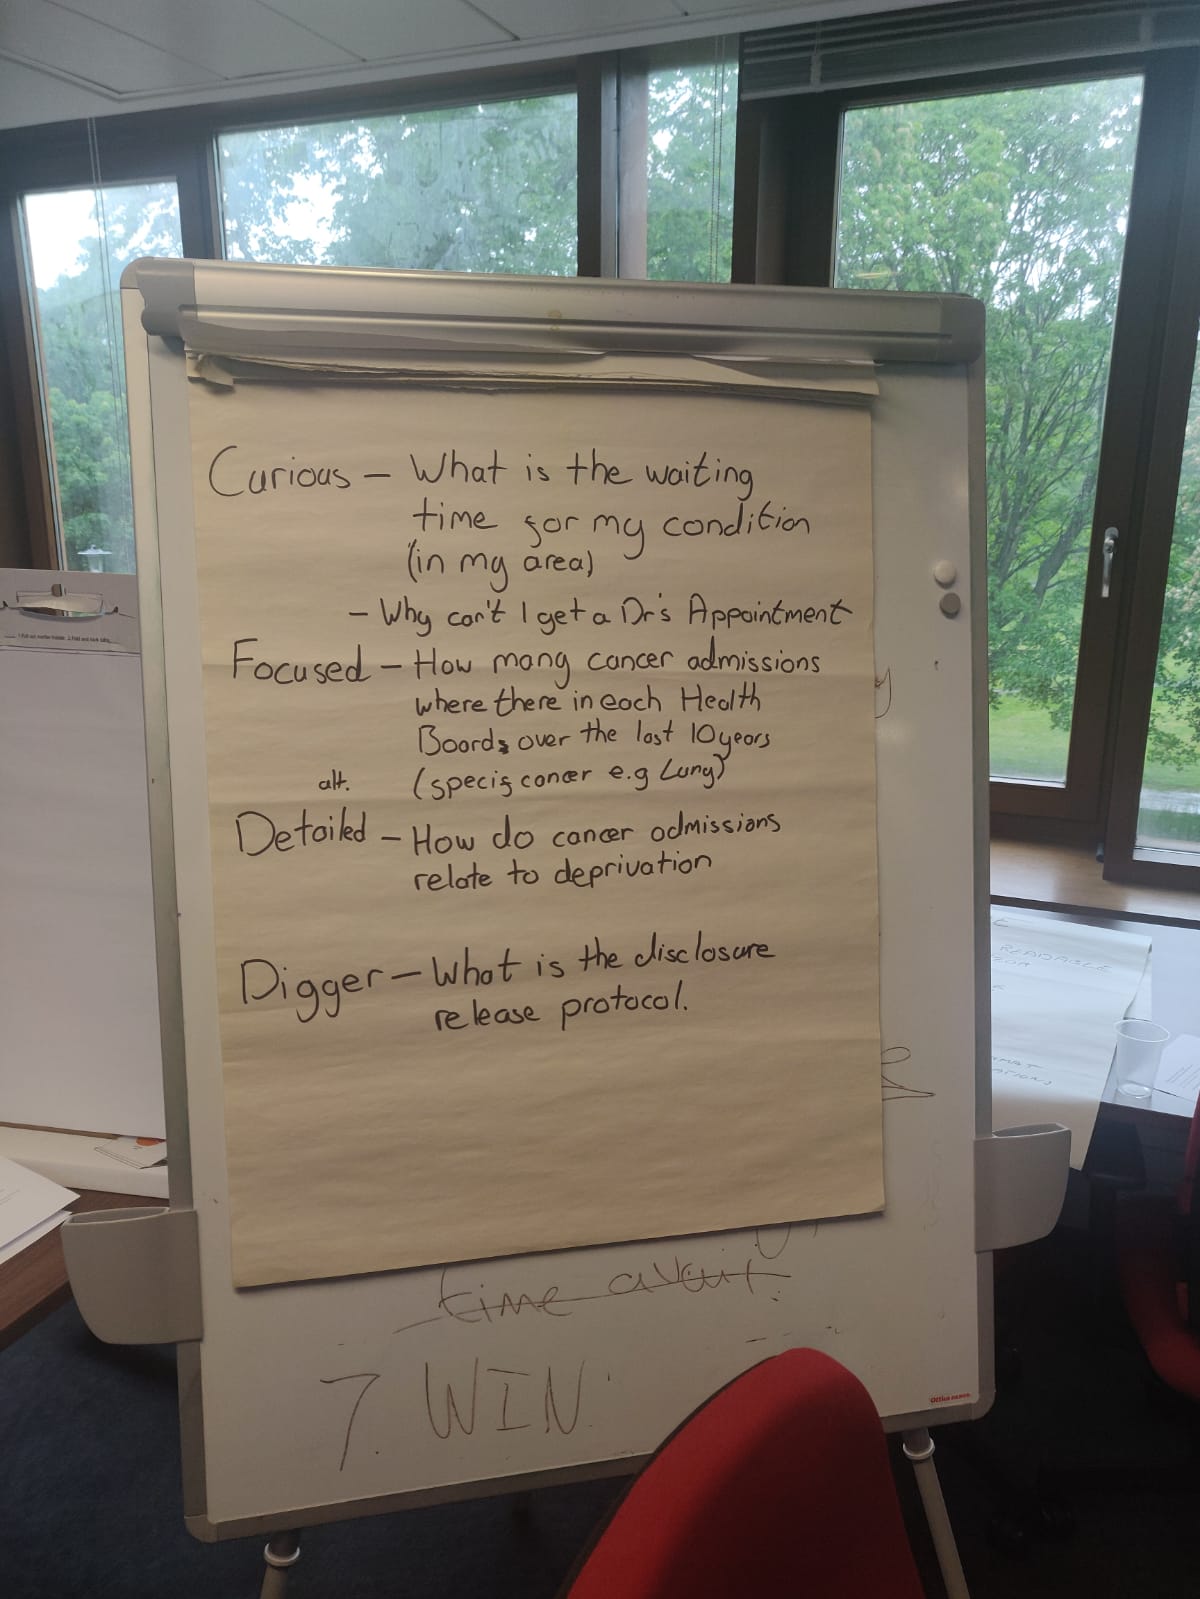 Curious – What is the waiting
time for my condition
(in my area)
– Why can't I get a Dr's Appointment
Focused – How many cancer admissions
where there in each Health
Boards over the last 10 years
alt. (specif cancer e.g Lung)
Detailed – How do cancer admissions
relate to deprivation
Digger – What is the disclosure
release protocol.
time
7. WIN.
Office DEPOT
READABLE